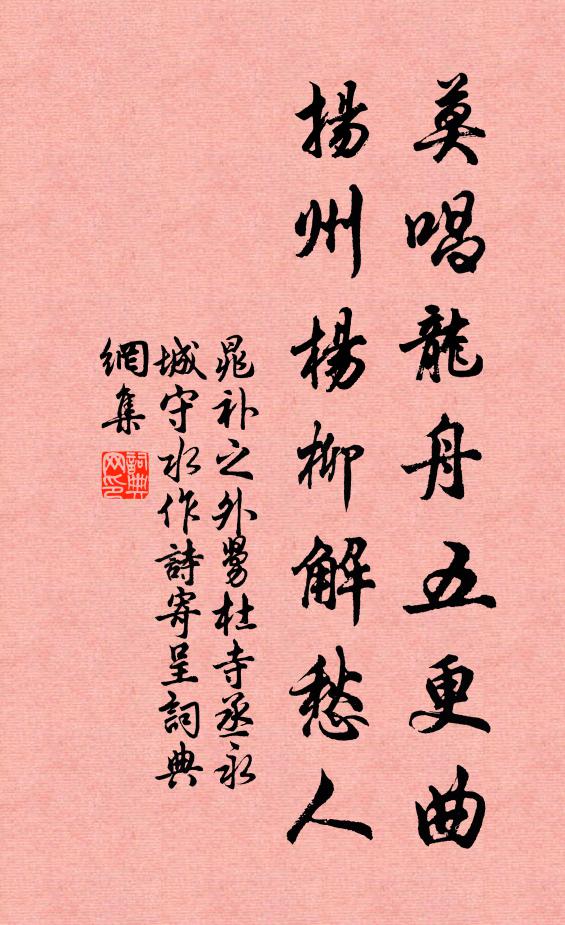 莫唱龍舟五更曲
揚州楊柳解愁人
晁補之外舅杜寺丞永
城守水作詩寄呈詞典
網集
詞典網印